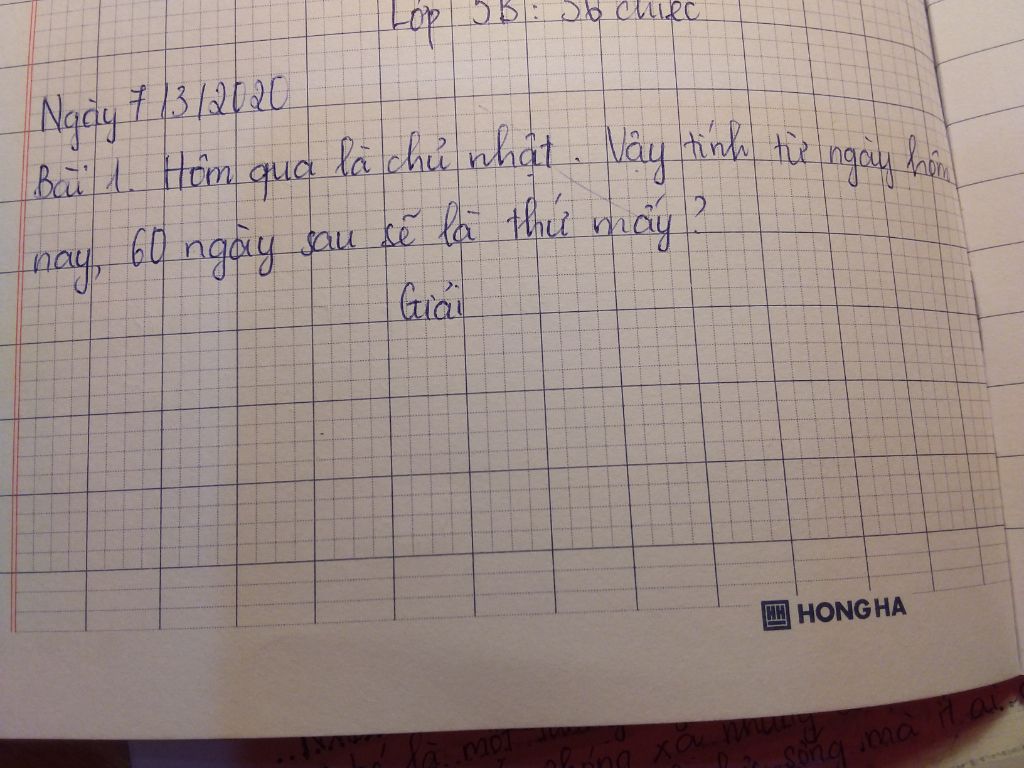 Lớp 5B: 36 chiếc
Ngày 7/3/2020
Bài 1. Hôm qua là chủ nhật. Vậy tính từ ngày hôm
nay, 60 ngày sau sẽ là thứ mấy?
Giải
HH HONG HA
là một
xã những
sống mà